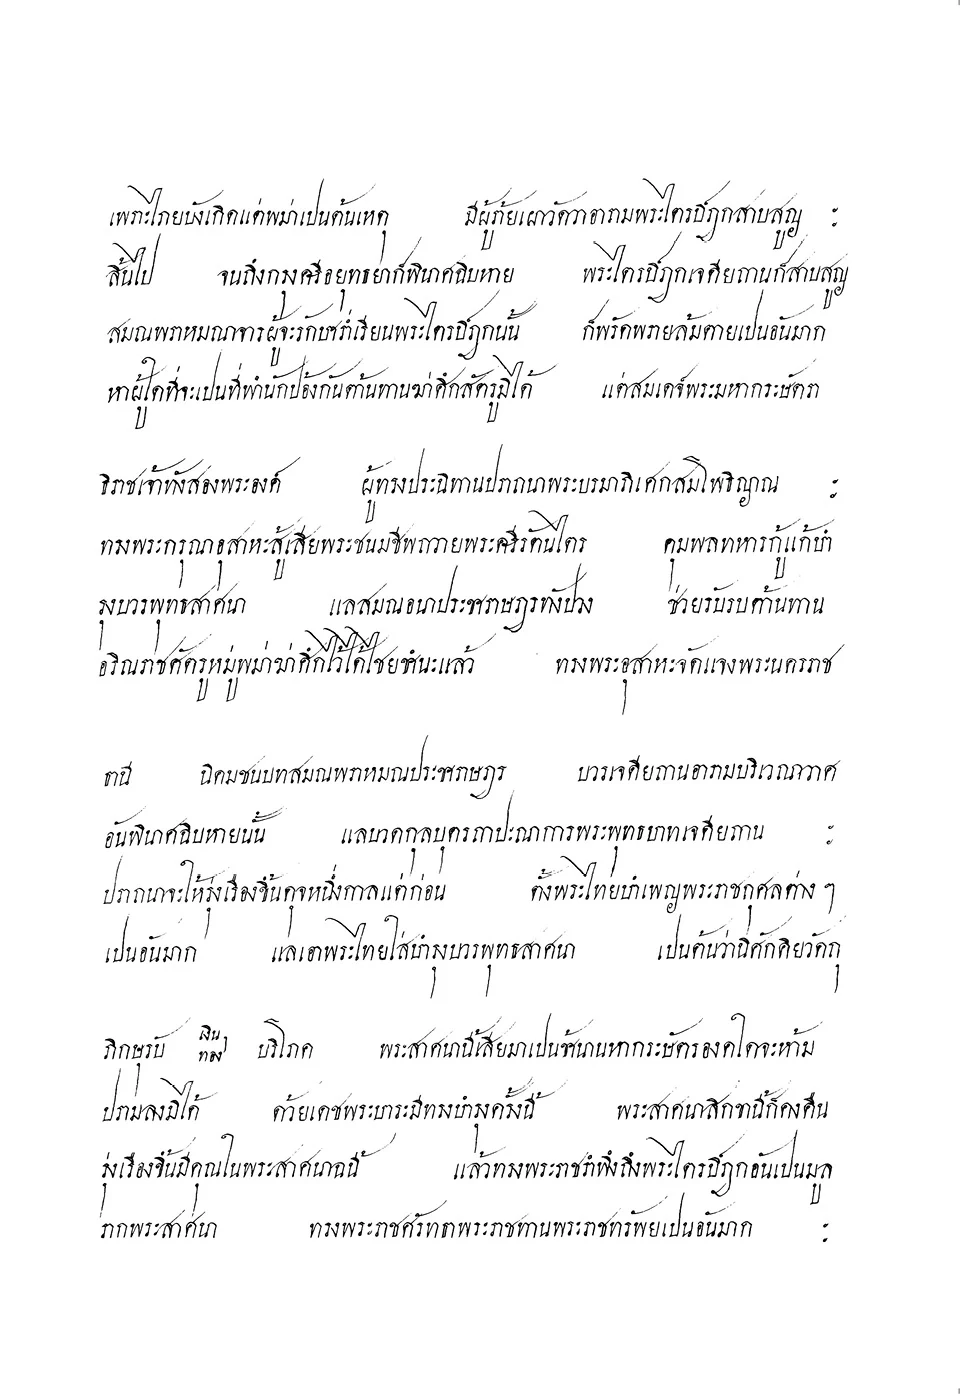 เพราะไภยบังเกิดแต่พม่าเปนต้นเหตุ มีผู้ภัยเผาวัดวาอารามพระไตรปิฎกสาบสูญ ะ
สิ้นไป จนถึงกรุงศรีอยุทธยาก็พินาศฉิบหาย พระไตรปิฎกเจดียถานก็สาบสูญ
สมณพราหมณาจารผู้จะรักษาร่ำเรียนพระไตรปิฎกนั้น ก็พรัดพรายล้มตายเปนอันมาก
หาผู้ใดที่จะเปนที่พำนักป้องกันต้านทานฆ่าศึกสัตรูมิได้ แต่สมเดจ์พระมหากระษัตรา
ธิราชเจ้าทังสองพระองค์ ผู้ทรงประนิทานปราถนาพระบรมาภิเศกสมโพธิญาณ ะ
ทรงพระกรุณาอุสาหะสู้เสียพระชนมชีพถวายพระศรีรัตนไตร คุมพลทหารกู้แก้บำ
รุงบวรพุทธสาศนา แลสมณอนาประชาราษฎรทังปวง ช่วยรับรบต้านทาน
อริณราชศัตรูหมู่พม่าฆ่าศึกไว้ได้ไชยชำนะแล้ว ทรงพระอุสาหะจัดแจงพระนครราช
ธานี นิคมชนบทสมณพราหมณประชาราษฎร บวรเจดียถานอารามบริเวณาวาศ
อันพินาศฉิบหายนั้น แลบวดกุลบุตรถาปะณาการพระพุทธบาทเจดียถาน ะ
ปราถนาจะให้รุ่งเรืองขึ้นดุจหนึ่งกาลแต่ก่อน ตั้งพระไทยบำเพญพระราชกุศลต่าง ๆ
เปนอันมาก แลเอาพระไทยใส่บำรุงบวรพุทธสาศนา เปนต้นว่านิศักคิยวัดถุ
ภิกษุรับ เงิน ทอง บริโภค พระสาศนานี้เสียมาเปนช้านานหากระษัตรองคใดจะห้าม
ปรามลงมิได้ ด้วยเดชพระบาระมีทรงบำรุงครั้งนี้ พระสาศนาสิกขานี้ก็คงคืน
รุ่งเรืองขึ้นมีคุณในพระสาศนาฉนี้ แล้วทรงพระราชรำพึงถึงพระไตรปิฎกอันเปนมูล
รากพระสาศนา ทรงพระราชศรัทธาพระราชทานพระราชทรัพยเปนอันมาก ะ